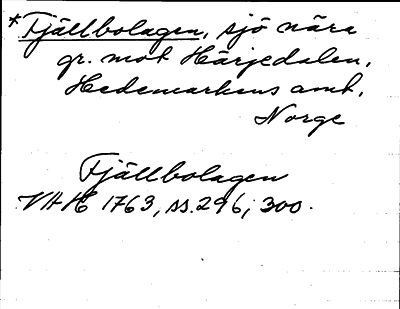 *Fjällbolagen, sjö nära
gr. mot Härjedalen,
Hedemarkens amt,
Norge
Fjällbolagen
VAH 1763, ss. 296, 300.